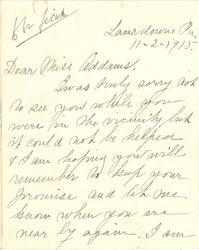 Lansdowne Pa.
11-2-1915.
Dear Miss Addams,
I was truly sorry not
to see you while you
were in the vicinity but
it could not be helped
& I am hoping you will
remember to keep your
promise and let me
know when you are
near by again. I am